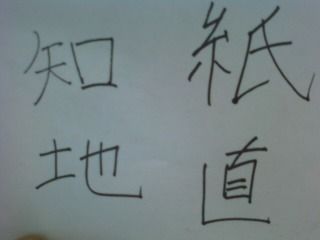 知 紙
地 直